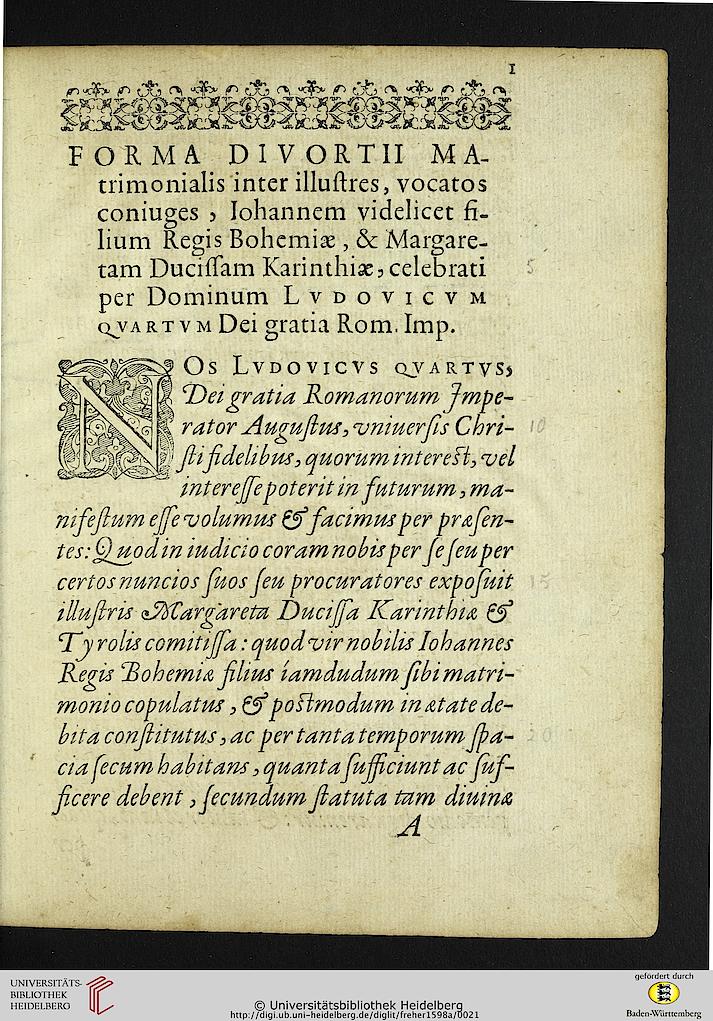 1
FORMA DIVORTII MA-
trimonialis inter illuſtres, vocatos
coniuges, Iohannem videlicet fi-
lium Regis Bohemiæ, & Margare-
tam Duciſſam Karinthiæ, celebrati
5
per Dominum LVDOVICVM
QVARTVM Dei gratia Rom. Imp.
NOs LVDOVICVS QVARTVS,
Dei gratia Romanorum Impe-
rator Auguſtus, vniuerſis Chri-
10
ſti fidelibus, quorum intereſt, vel
intereſſe poterit in futurum, ma-
nifeſtum eſſe volumus & facimus per præſen-
tes: Quod in iudicio coram nobis per ſe ſeu per
certos nuncios ſuos ſeu procuratores expoſuit
15
illuſtris Margareta Duciſſa Karinthiæ &
Tyrolis comitiſſa: quod vir nobilis Iohannes
Regis Bohemiæ filius iamdudum ſibi matri-
monio copulatus, & poſtmodum in ætate de-
bita conſtitutus, ac per tanta temporum ſpa-
20
cia ſecum habitans, quanta ſufficiunt ac ſuf-
ficere debent, ſecundum ſtatuta tam diuinæ
A
UNIVERSITÄTS-
BIBLIOTHEK
HEIDELBERG
© Universitätsbibliothek Heidelberg
http://digi.ub.uni-heidelberg.de/diglit/freher1598a/0021
gefördert durch
Baden-Württemberg